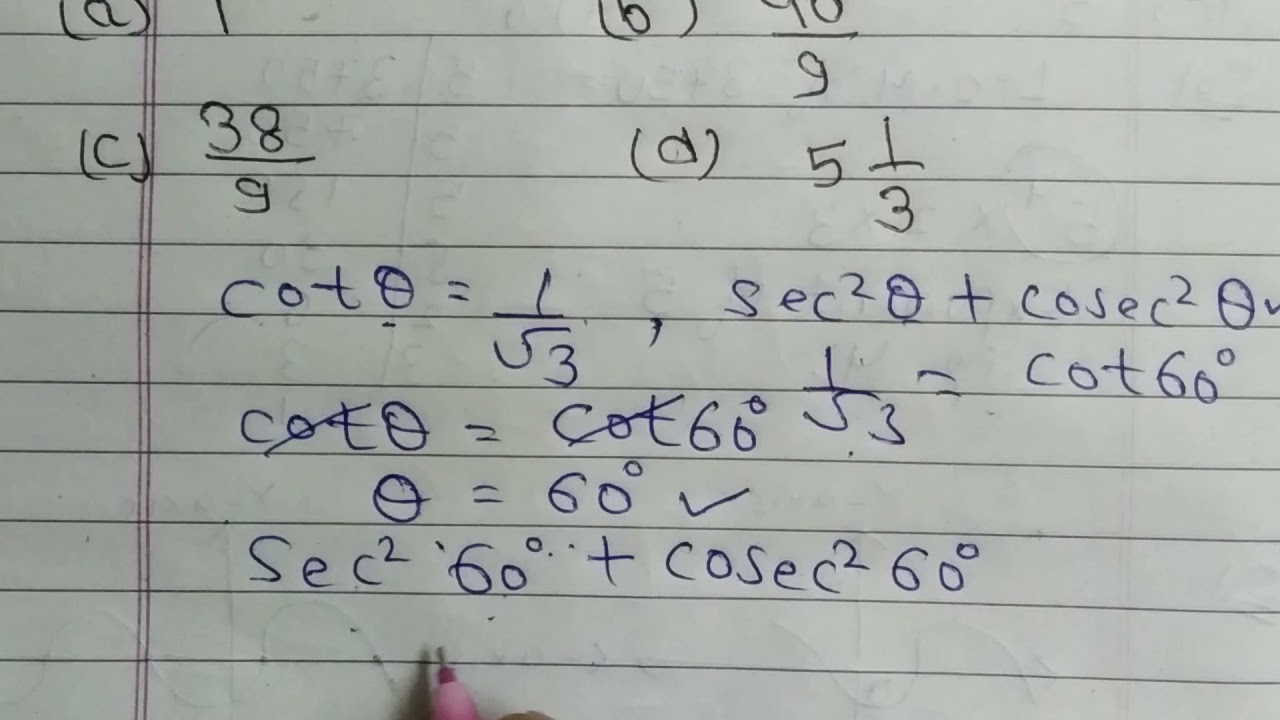 (a) 1 (b) 40/9
(c) 38/9 (d) 5 1/3
cot θ = 1/√3 , sec² θ + cosec² θ
cot θ = cot 60° 1/√3 = cot 60°
θ = 60° ✓
Sec² 60° + cosec² 60°